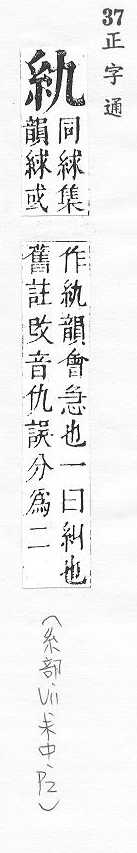 37 正字通
䊵
同絿集
韻絿或
作䊵韻會急也一曰糾也
舊註改音仇誤分爲二
(糸部.Vii.未中.P2)